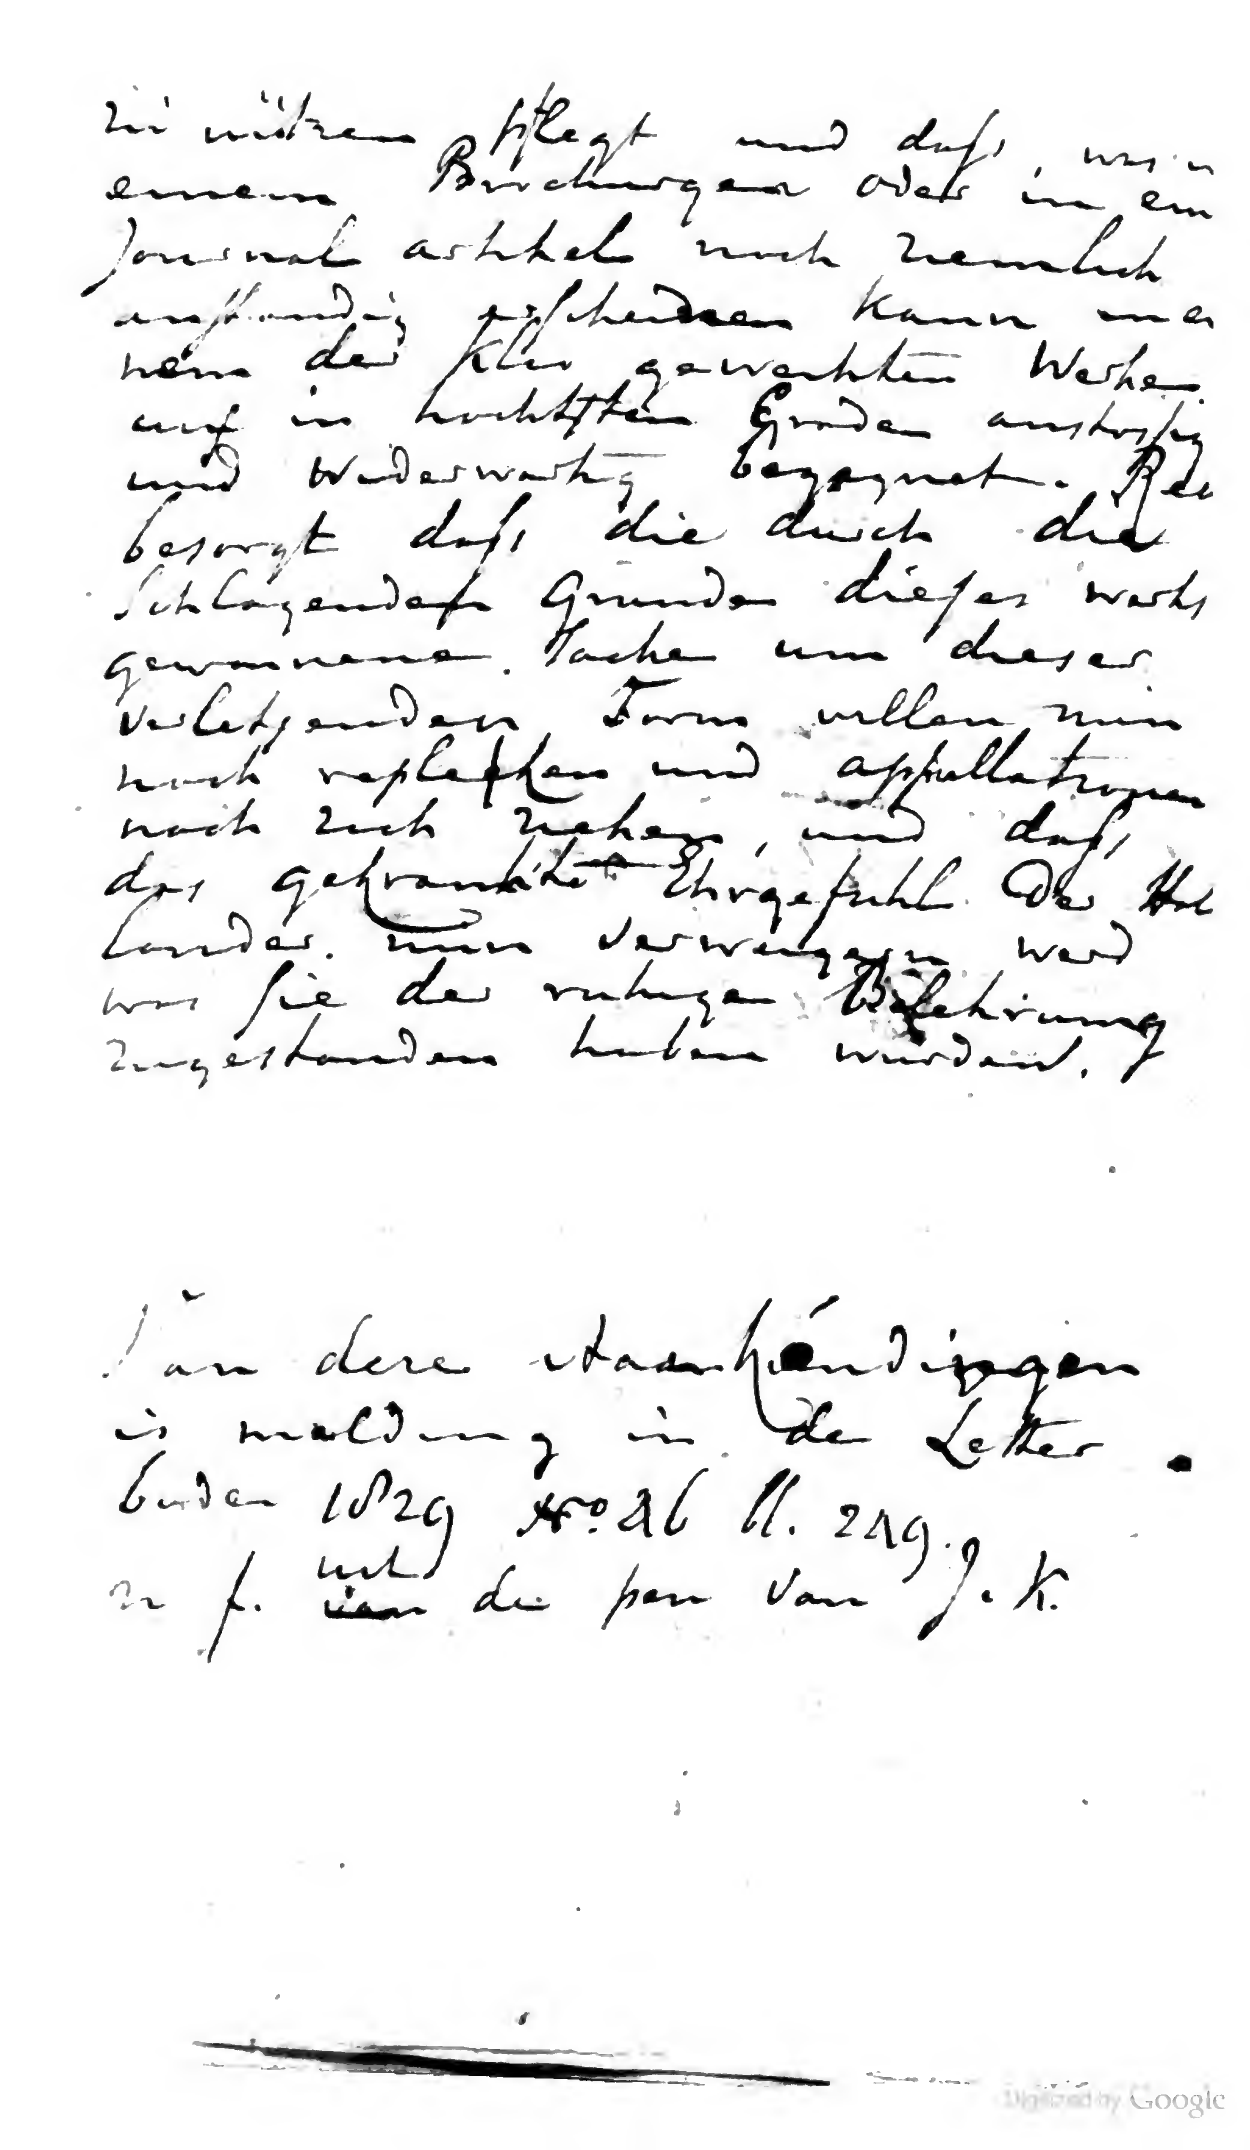 zu nützen pflegt und daß, was in
einem Brochurgen oder in ein
Journal artikel noch ziemlich
anstandig erscheinen kann in ei
nem der Klio geweihten Werke
auf in hochtsten Graden anstossig
und widerwartig begegnet. Rec
besorgt daß die durch die
Schlagenden Grunde dieses werks
gewonnene Sache um dieser
verletzenden Form willen nun
noch und appellationen
nach sich ziehen, und daß
das gekrankte Ehrgefuhl der Hol
lander nun verweigern werd
was Sie der ruhigen Belehrung
zugestanden haben wurden.
Van dere
is melding in de Letter
boden 1829 No. 16 bl. 249.
z f. uit de pen van J. K.
Digitized by Google